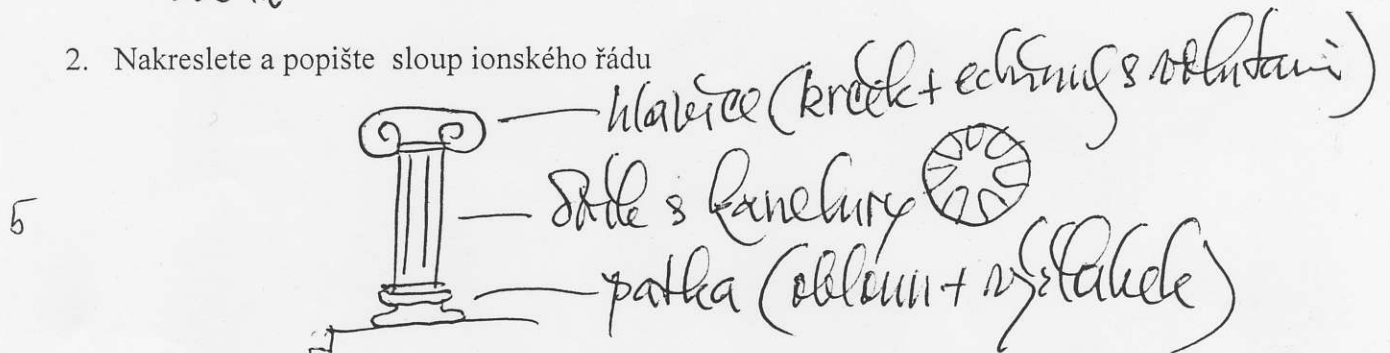 2. Nakreslete a popište sloup ionského řádu
hlavice (krček + echinus s volutami)
5
dřík s kanelury
patka (obloun + výžlabek)